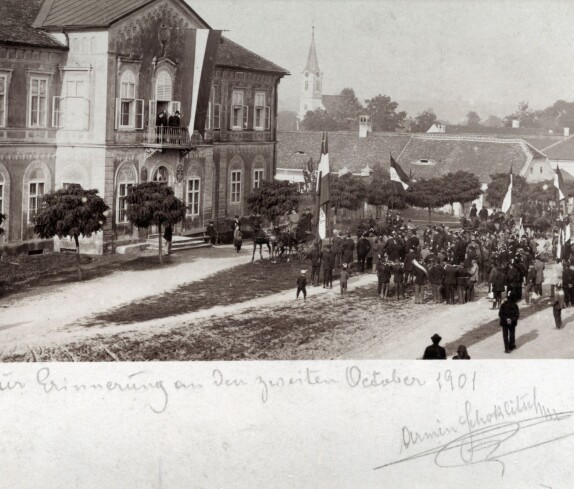 zur Erinnerung an den zweiten October 1901
Armin Schoklitsch